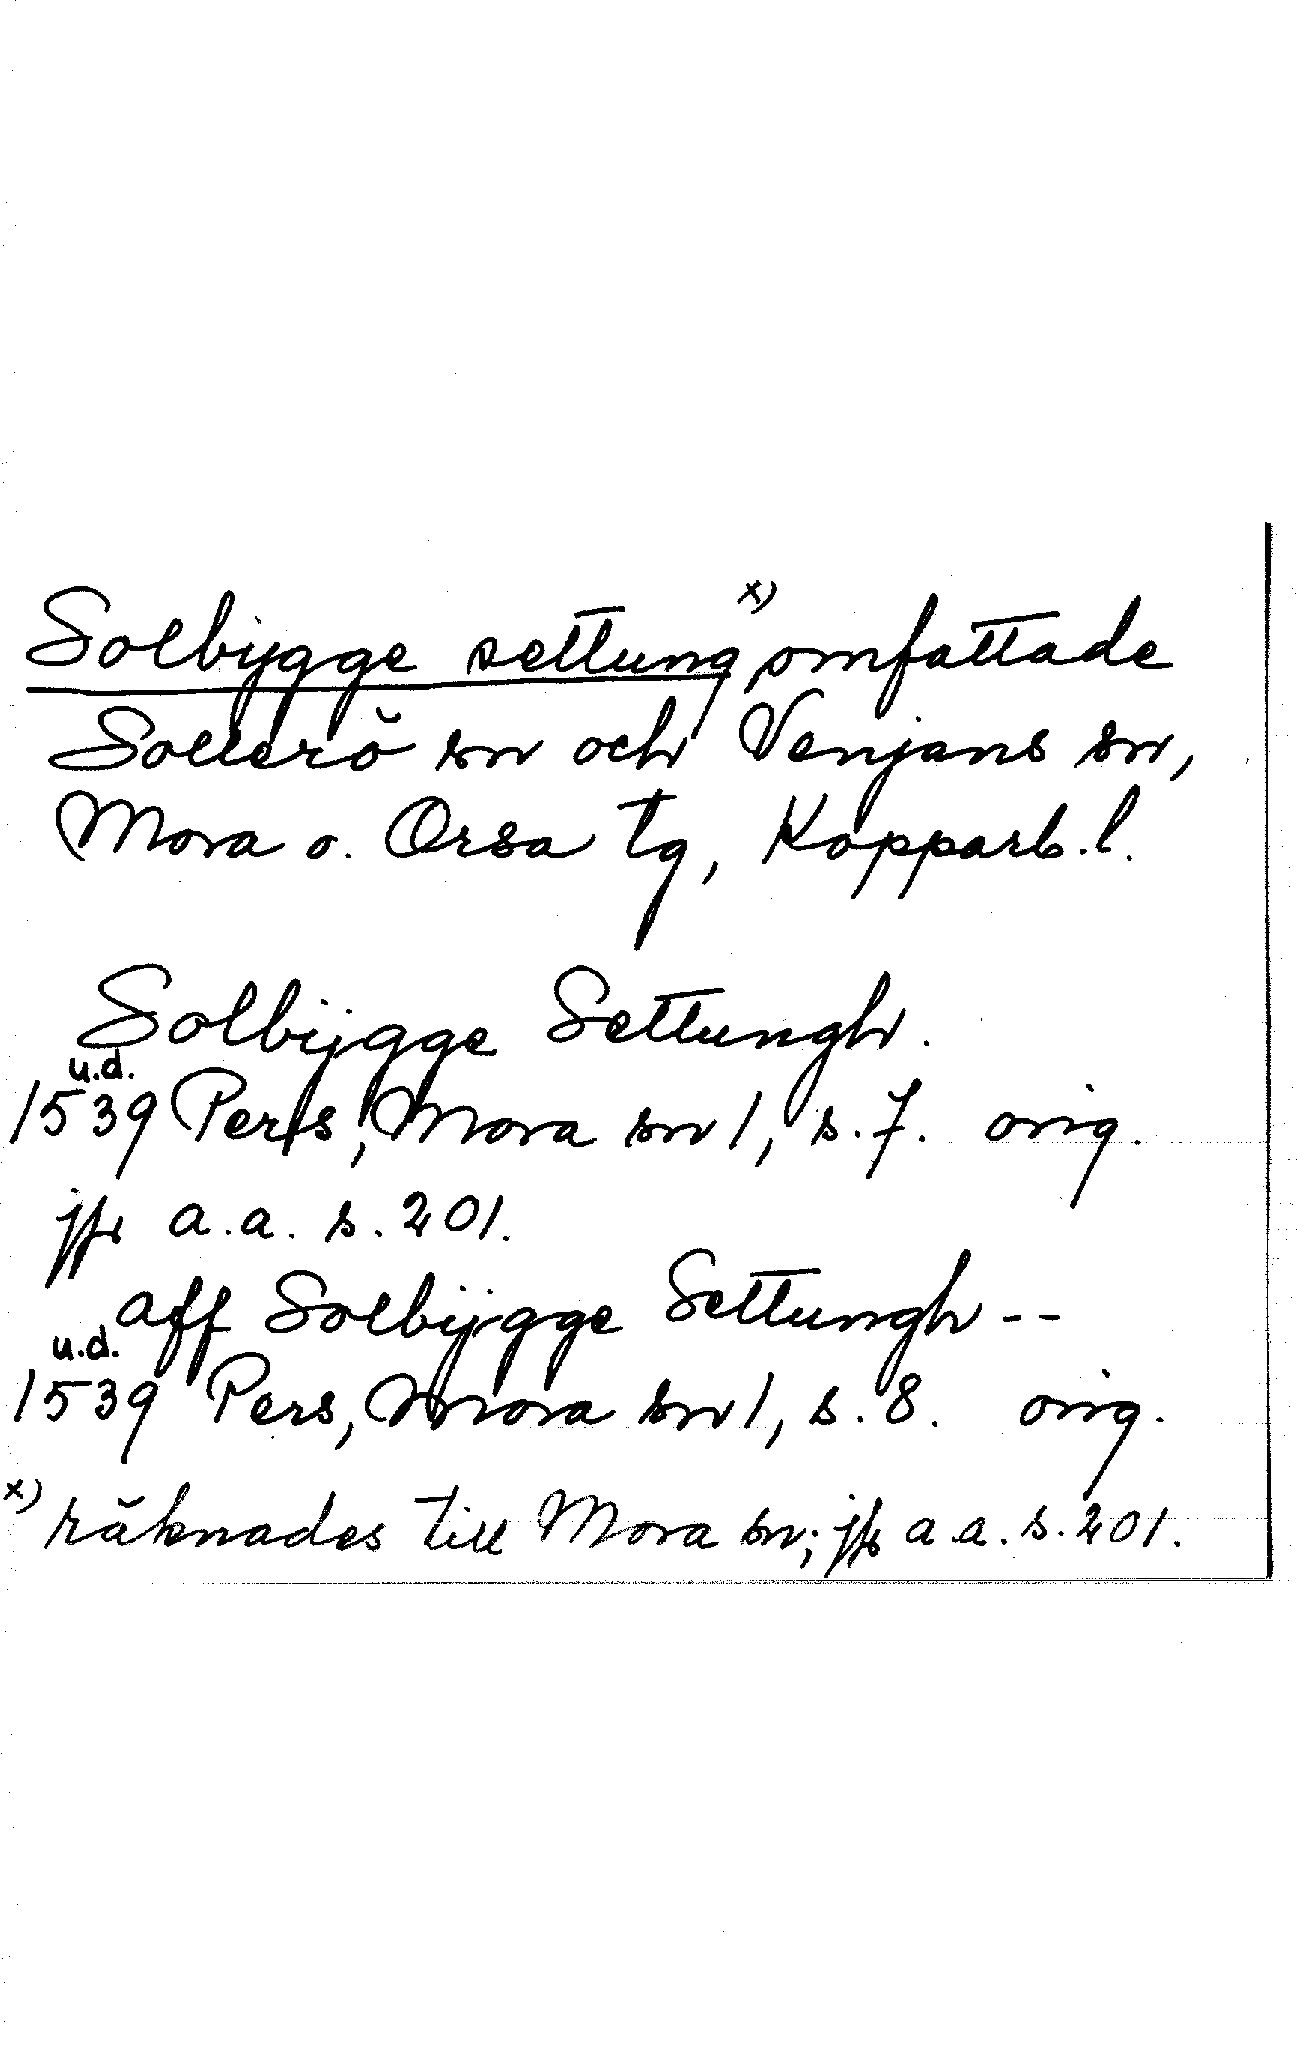 Solbijgge settung x) omfattade
Sollerö sn och Venjans sn,
Mora o. Orsa tg, Kopparb.l.
Solbijgge Settungh.
u.d.
1539 Pers, Mora sn 1, s. 7. orig.
jfr a.a. s. 201.
aff Solbijgge Settungh --
u.d.
1539 Pers, Mora sn 1, s. 8. orig.
x) räknades till Mora sn; jfr a.a. s. 201.